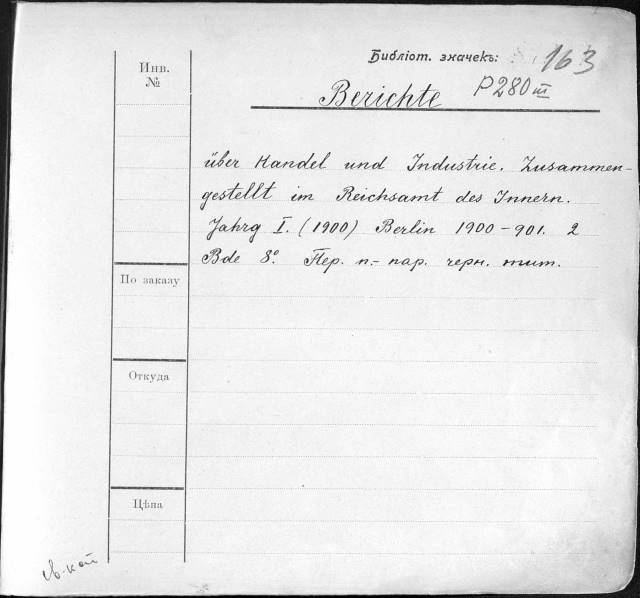 Инв.
№
Библіот. значекъ: 163
Р280III
Berichte
über Handel und Industrie. Zusammen-
gestellt im Reichsamt des Innern.
Jahrg I. (1900) Berlin 1900-901. 2
Bde 8°. Пер. п.- пар. черн. тит.
По заказу
Откуда
Цѣна